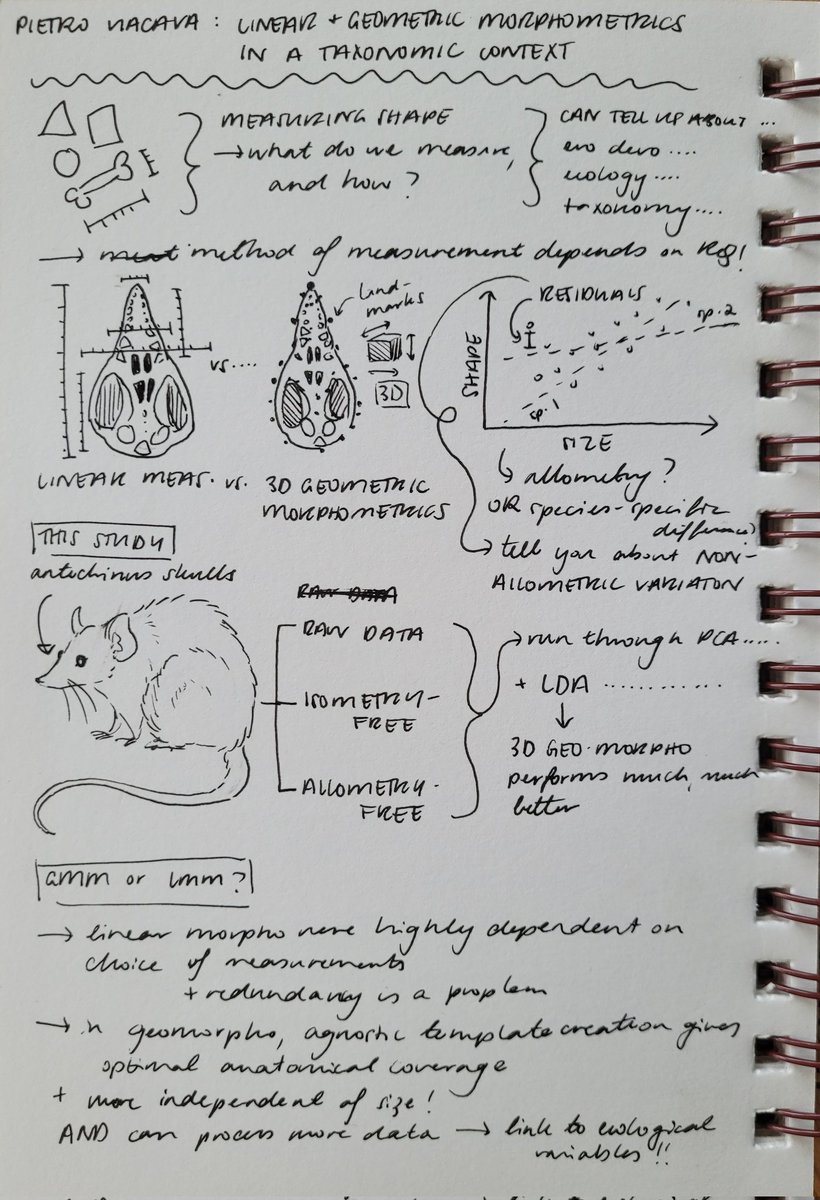 PIETRO VIACAVA: LINEAR + GEOMETRIC MORPHOMETRICS
IN A TAXONOMIC CONTEXT
MEASURING SHAPE
→ what do we measure,
and how?
CAN TELL US ABOUT ...
evo devo ....
ecology ....
taxonomy ....
→ method of measurement depends on RQ!
vs ....
Land-
marks
3D
SHAPE
RESIDUALS
sp. 2
sp. 1
SIZE
LINEAR MEAS. vs. 3D GEOMETRIC
MORPHOMETRICS
↳ allometry?
OR species-specific
difference?
→ tell you about NON-
ALLOMETRIC VARIATON
THIS STUDY
antechinus skulls
RAW DATA
RAW DATA
ISOMETRY-
FREE
ALLOMETRY-
FREE
→ run through PCA .....
+ LDA ............
↓
3D GEO-MORPHO
performs much, much
better
GMM or LMM?
→ linear morpho more highly dependent on
choice of measurements
+ redundancy is a problem
→ in geomorpho, agnostic template creation gives
optimal anatomical coverage
+ more independent of size!
AND can process more data → link to ecological
variables!!